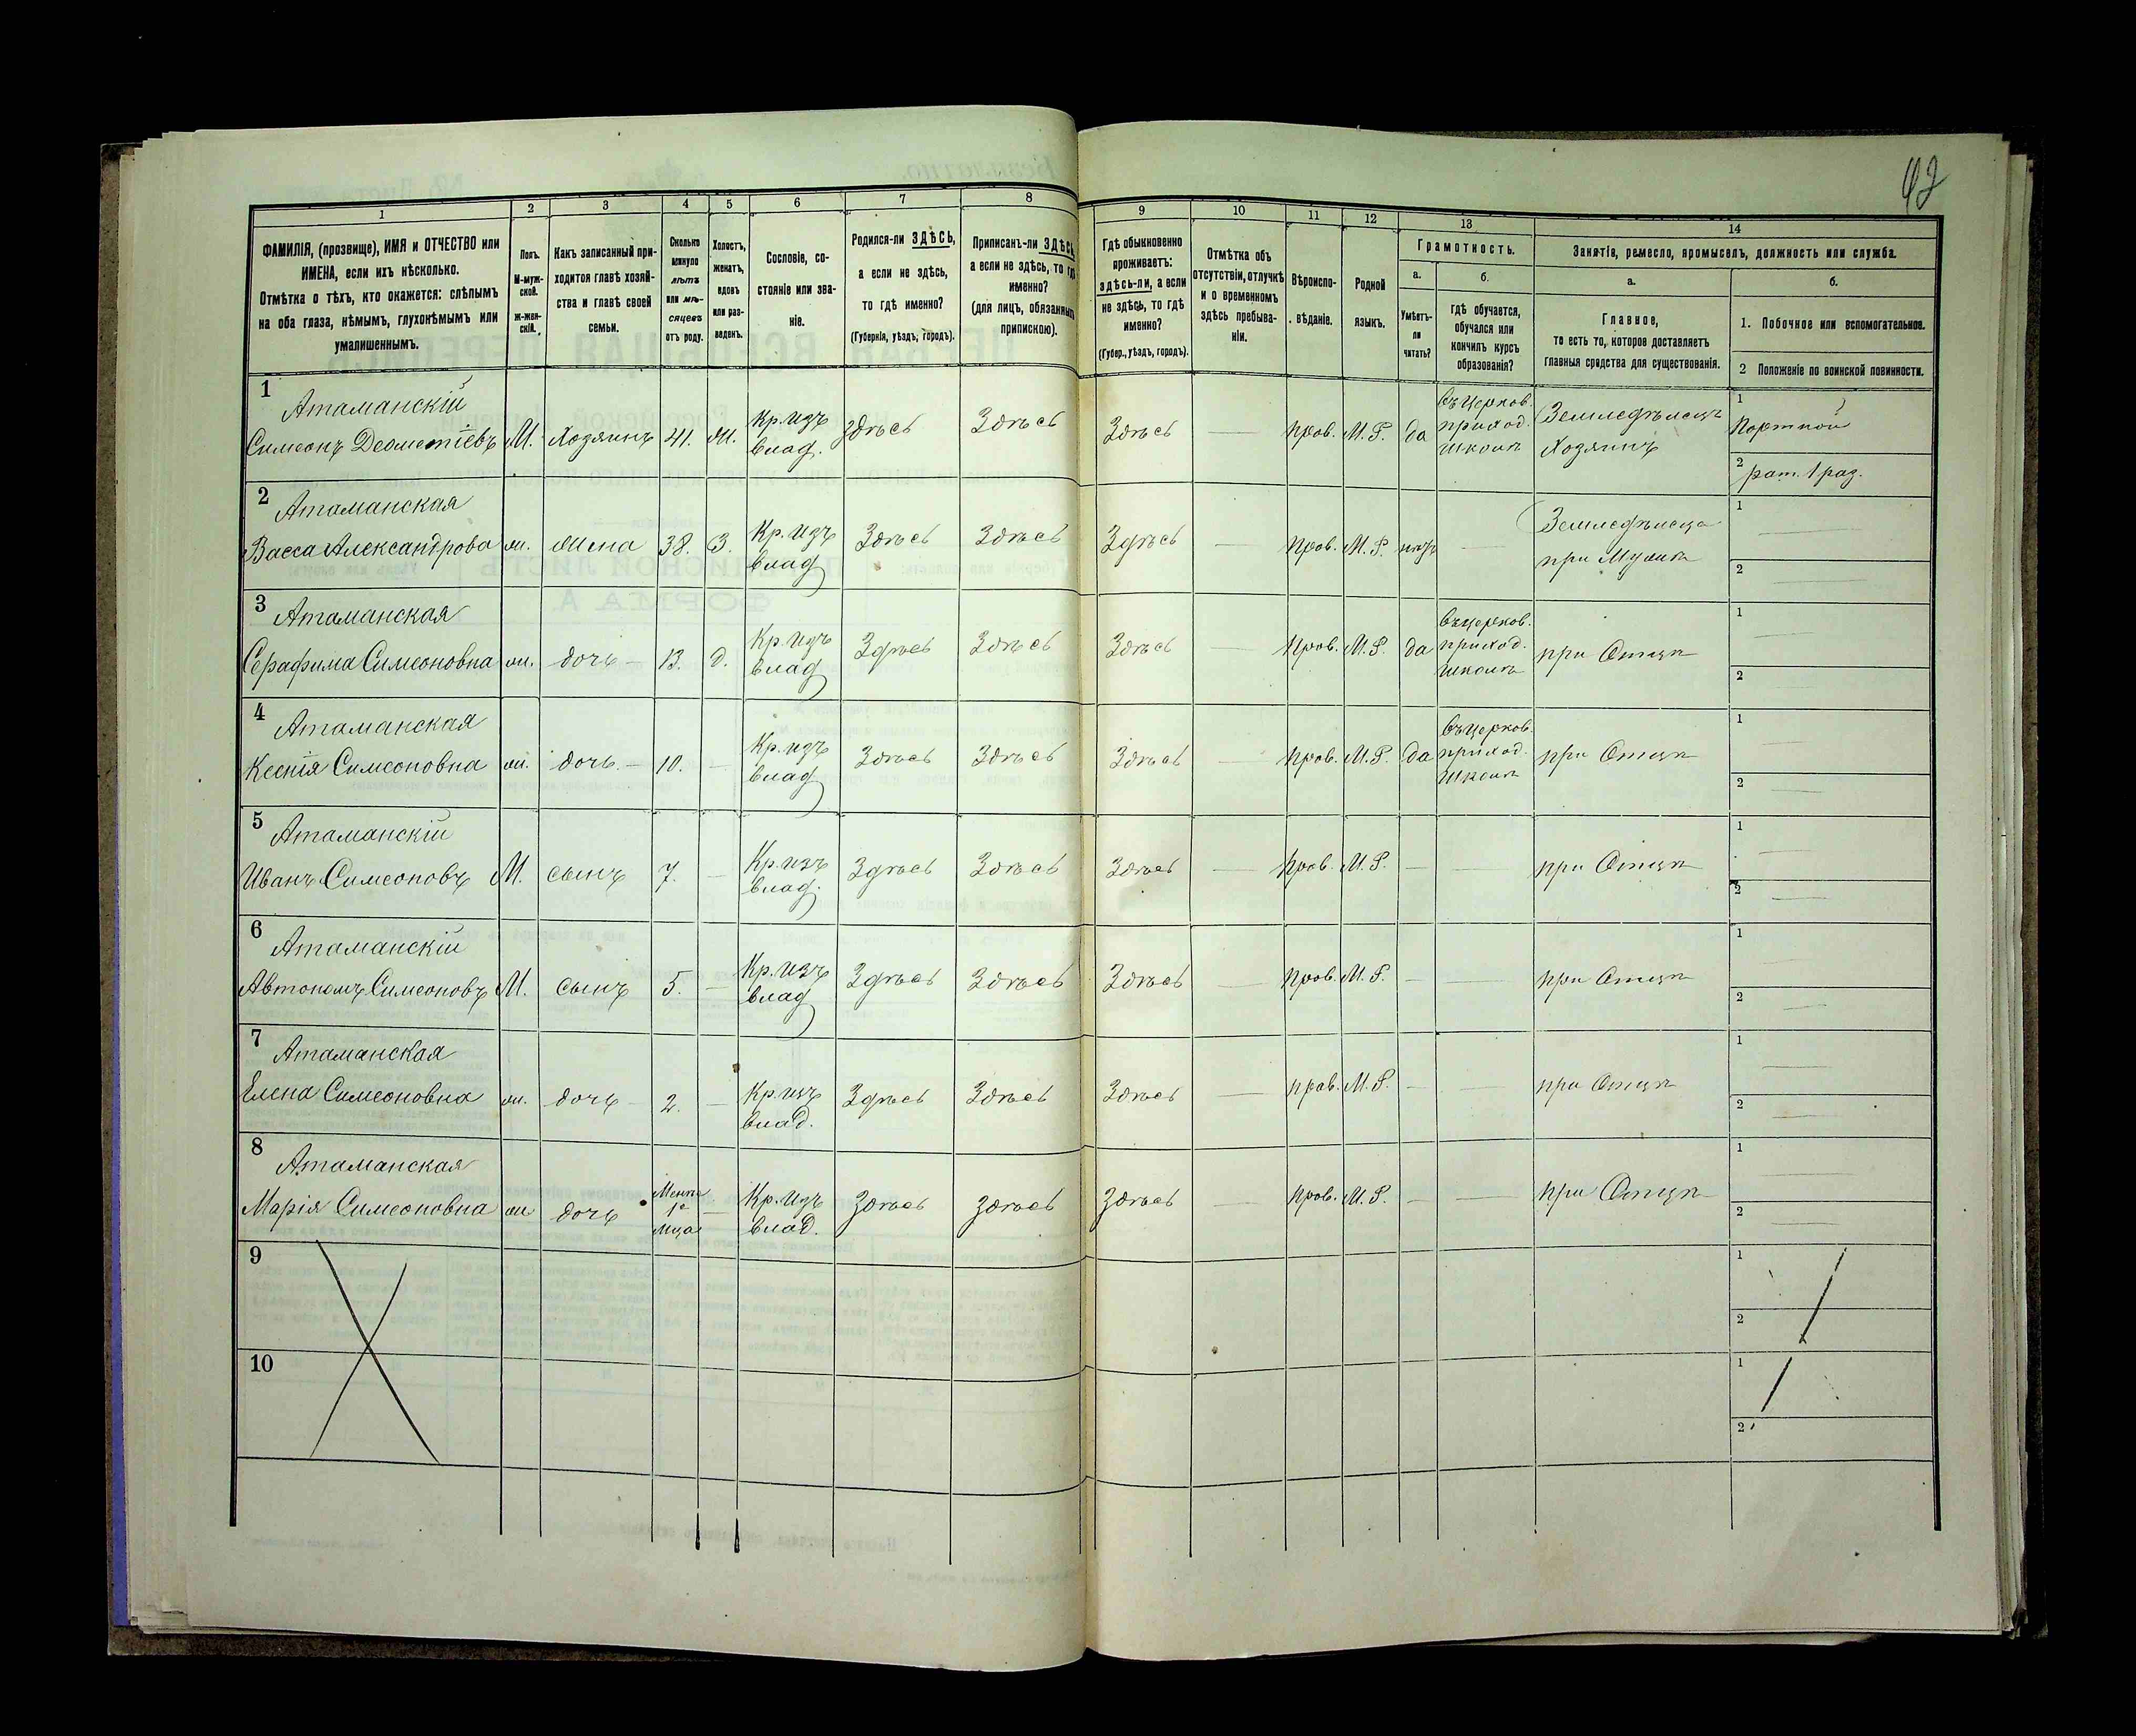 42
1 2 3 4 5 6 7 8 9 10 11 12 13 14
ФАМИЛІЯ, (прозвище), ИМЯ и ОТЧЕСТВО или
ИМЕНА, если ихъ нѣсколько.
Отмѣтка о тѣхъ, кто окажется: слѣпымъ
на оба глаза, нѣмымъ, глухонѣмымъ или
умалишеннымъ.
Полъ.
М-муж-
ской.
ж-жен-
скій.
Какъ записанный при-
ходится главѣ хозяй-
ства и главѣ своей
семьи.
Сколько
минуло
лѣтъ
или мѣ-
сяцевъ
отъ роду.
Холостъ,
женатъ,
вдовъ
или раз-
веденъ.
Сословіе, со-
стояніе или зва-
ніе.
Родился-ли ЗДѢСЬ,
а если не здѣсь,
то гдѣ именно?
(Губернія, уѣздъ, городъ).
Приписанъ-ли ЗДѢСЬ
а если не здѣсь, то гдѣ
именно?
(для лицъ, обязанныхъ
припискою).
Гдѣ обыкновенно
проживаетъ:
здѣсь-ли, а если
не здѣсь, то гдѣ
именно?
(Губер., уѣздъ, городъ).
Отмѣтка объ
отсутствіи, отлучкѣ
и о временномъ
здѣсь пребыва-
ніи.
Вѣроиспо-
вѣданіе.
Родной
языкъ.
Грамотность.
а.
Умѣетъ-
ли
читать?
б.
гдѣ обучается,
обучался или
кончилъ курсъ
образованія?
Занятія, ремесло, промыселъ, должность или служба.
а.
Главное,
то есть то, которое доставляетъ
главныя средства для существованія.
б.
1. Побочное или вспомогательное.
2 Положеніе по воинской повинности.
1 Атаманскій
Симеонъ Деомѣтіевъ М. Хозяинъ 41. Ж. Кр. изъ влад. Здѣсь Здѣсь Здѣсь — Прав. М.Р. да въ церков. приход. школѣ Земледѣлецъ Хозяинъ 1 Портной 2 рат. 1 раз.
2 Атаманская
Васса Александрова ж. жена 38. З. Кр. изъ влад Здѣсь Здѣсь Здѣсь — Прав. М.Р. нѣтъ — Земледѣлица при Мужѣ 1 — 2 —
3 Атаманская
Серафима Симеоновна ж. дочь — 13. д. Кр. изъ влад Здѣсь Здѣсь Здѣсь — Прав. М.Р. да въ церков. приход. школѣ при Отцѣ 1 — 2 —
4 Атаманская
Ксенія Симеоновна ж. дочь. — 10. — Кр. изъ влад Здѣсь Здѣсь Здѣсь — Прав. М.Р. да въ церков. приход. школѣ при Отцѣ 1 — 2 —
5 Атаманскій
Иванъ Симеоновъ М. сынъ 7. — Кр. изъ влад. Здѣсь Здѣсь Здѣсь — Прав. М.Р. — — при Отцѣ 1 — 2 —
6 Атаманскій
Автономъ Симеоновъ М. сынъ 5. — Кр. изъ влад Здѣсь Здѣсь Здѣсь — Прав. М.Р. — — при Отцѣ 1 — 2 —
7 Атаманская
Елена Симеоновна ж. дочь — 2. — Кр. изъ влад. Здѣсь Здѣсь Здѣсь — прав. М.Р. — — при Отцѣ 1 — 2 —
8 Атаманская
Марія Симеоновна ж дочь Менѣе 1го Мца — Кр. изъ влад. Здѣсь Здѣсь Здѣсь — Прав. М.Р. — — при Отцѣ 1 — 2 —
9 1 2
10 1 2